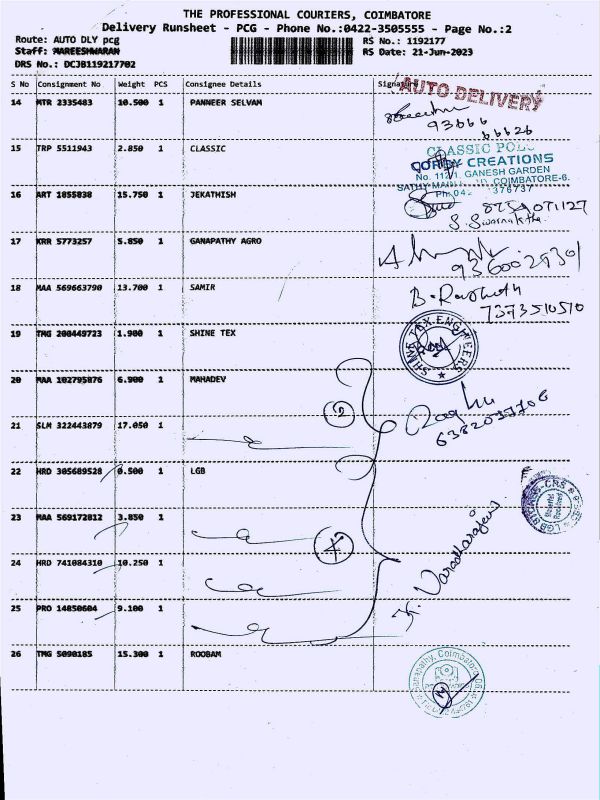 THE PROFESSIONAL COURIERS, COIMBATORE
Delivery Runsheet - PCG - Phone No.:0422-3505555 - Page No.:2
Route: AUTO DLY pcg
RS No.: 1192177
Staff: MAREESHWARAN
RS Date: 21-Jun-2023
DRS No.: DCJB119217702
S No Consignment No Weight PCS Consignee Details Signature
AUTO DELIVERY
14 MTR 2335483 10.500 1 PANNEER SELVAM
93666
66626
15 TRP 5511943 2.850 1 CLASSIC
CLASSIC POLO
CREATIONS
GANESH GARDEN
COIMBATORE-6.
376737
16 ART 1855038 15.750 1 JEKATHISH
8754071127
S. Swarnalatha.
17 KRR 5773257 5.850 1 GANAPATHY AGRO
9360029301
18 MAA 569663790 13.700 1 SAMIR
7373510510
19 TMG 200449723 1.900 1 SHINE TEX
SHINE TEX ENGINEERS
20 MAA 102795876 6.900 1 MAHADEV
2
Raghu
21 SLM 322443879 17.050 1
22 HRD 305689528 0.500 1 LGB
23 MAA 569172812 3.850 1
K. Varadharajan
24 HRD 741084310 10.250 1
4
25 PRO 14850604 9.100 1
26 TMG 5090185 15.300 1 ROOBAM
Ganapathy, Coimbatore